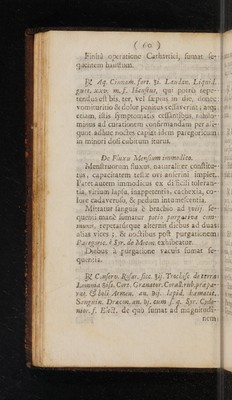 ( 60 )
Finita operatione Cathartici, sumat se-
quentem haustum.
℞ Aq. Cinnam. fort. ℥i. Laudan. Liquid.
gutt. xxv. m. f. Haustus, qui poterit repe-
tendus est bis, ter, vel sæpius in die, donec
vomituritio & dolor penitus cessaverint; atq;
etiam, istis symptomatis cessantibus,
minus ad curationem confirmandam per ali-
quot adhuc noctes capiat idem paregoricum
in minori dosi cubitum iturus.
De Fluxu Mensium immodico.
Menstruorum fluxus, naturaliter constitu-
tus, capacitatem testæ ovi anserini implet.
Patet autem immodicus ex difficili toleran-
tia, virium lapsu, inappetentia, cachexia, co-
lore cadaveroso, & pedum intumescentia.
Mittatur sanguis è brachio ad ℥viij. se-
quenti manè sumatur potio purgativa com-
munis, repetaturque alternis diebus ad duas
alias vices; & noctibus post purgationem
Paregoric. è Syr. de Mecon. exhibeatur.
Diebus à purgatione vacuis sumat se-
quentia.
℞ Conserv. Rosar. sicc. ℥ij. Trochisc. de terra
Lemnia ʒiſs. Cort. Granator. Corall. rub. præpa-
rat. & boli Armen. an. ℈ij. lapid. hæmatit.
Sanguin. Dracon. an. ℈j. cum s. q. Syr. Cydo-
nior. f. Elect. de quo sumat ad magnitudi-
nem